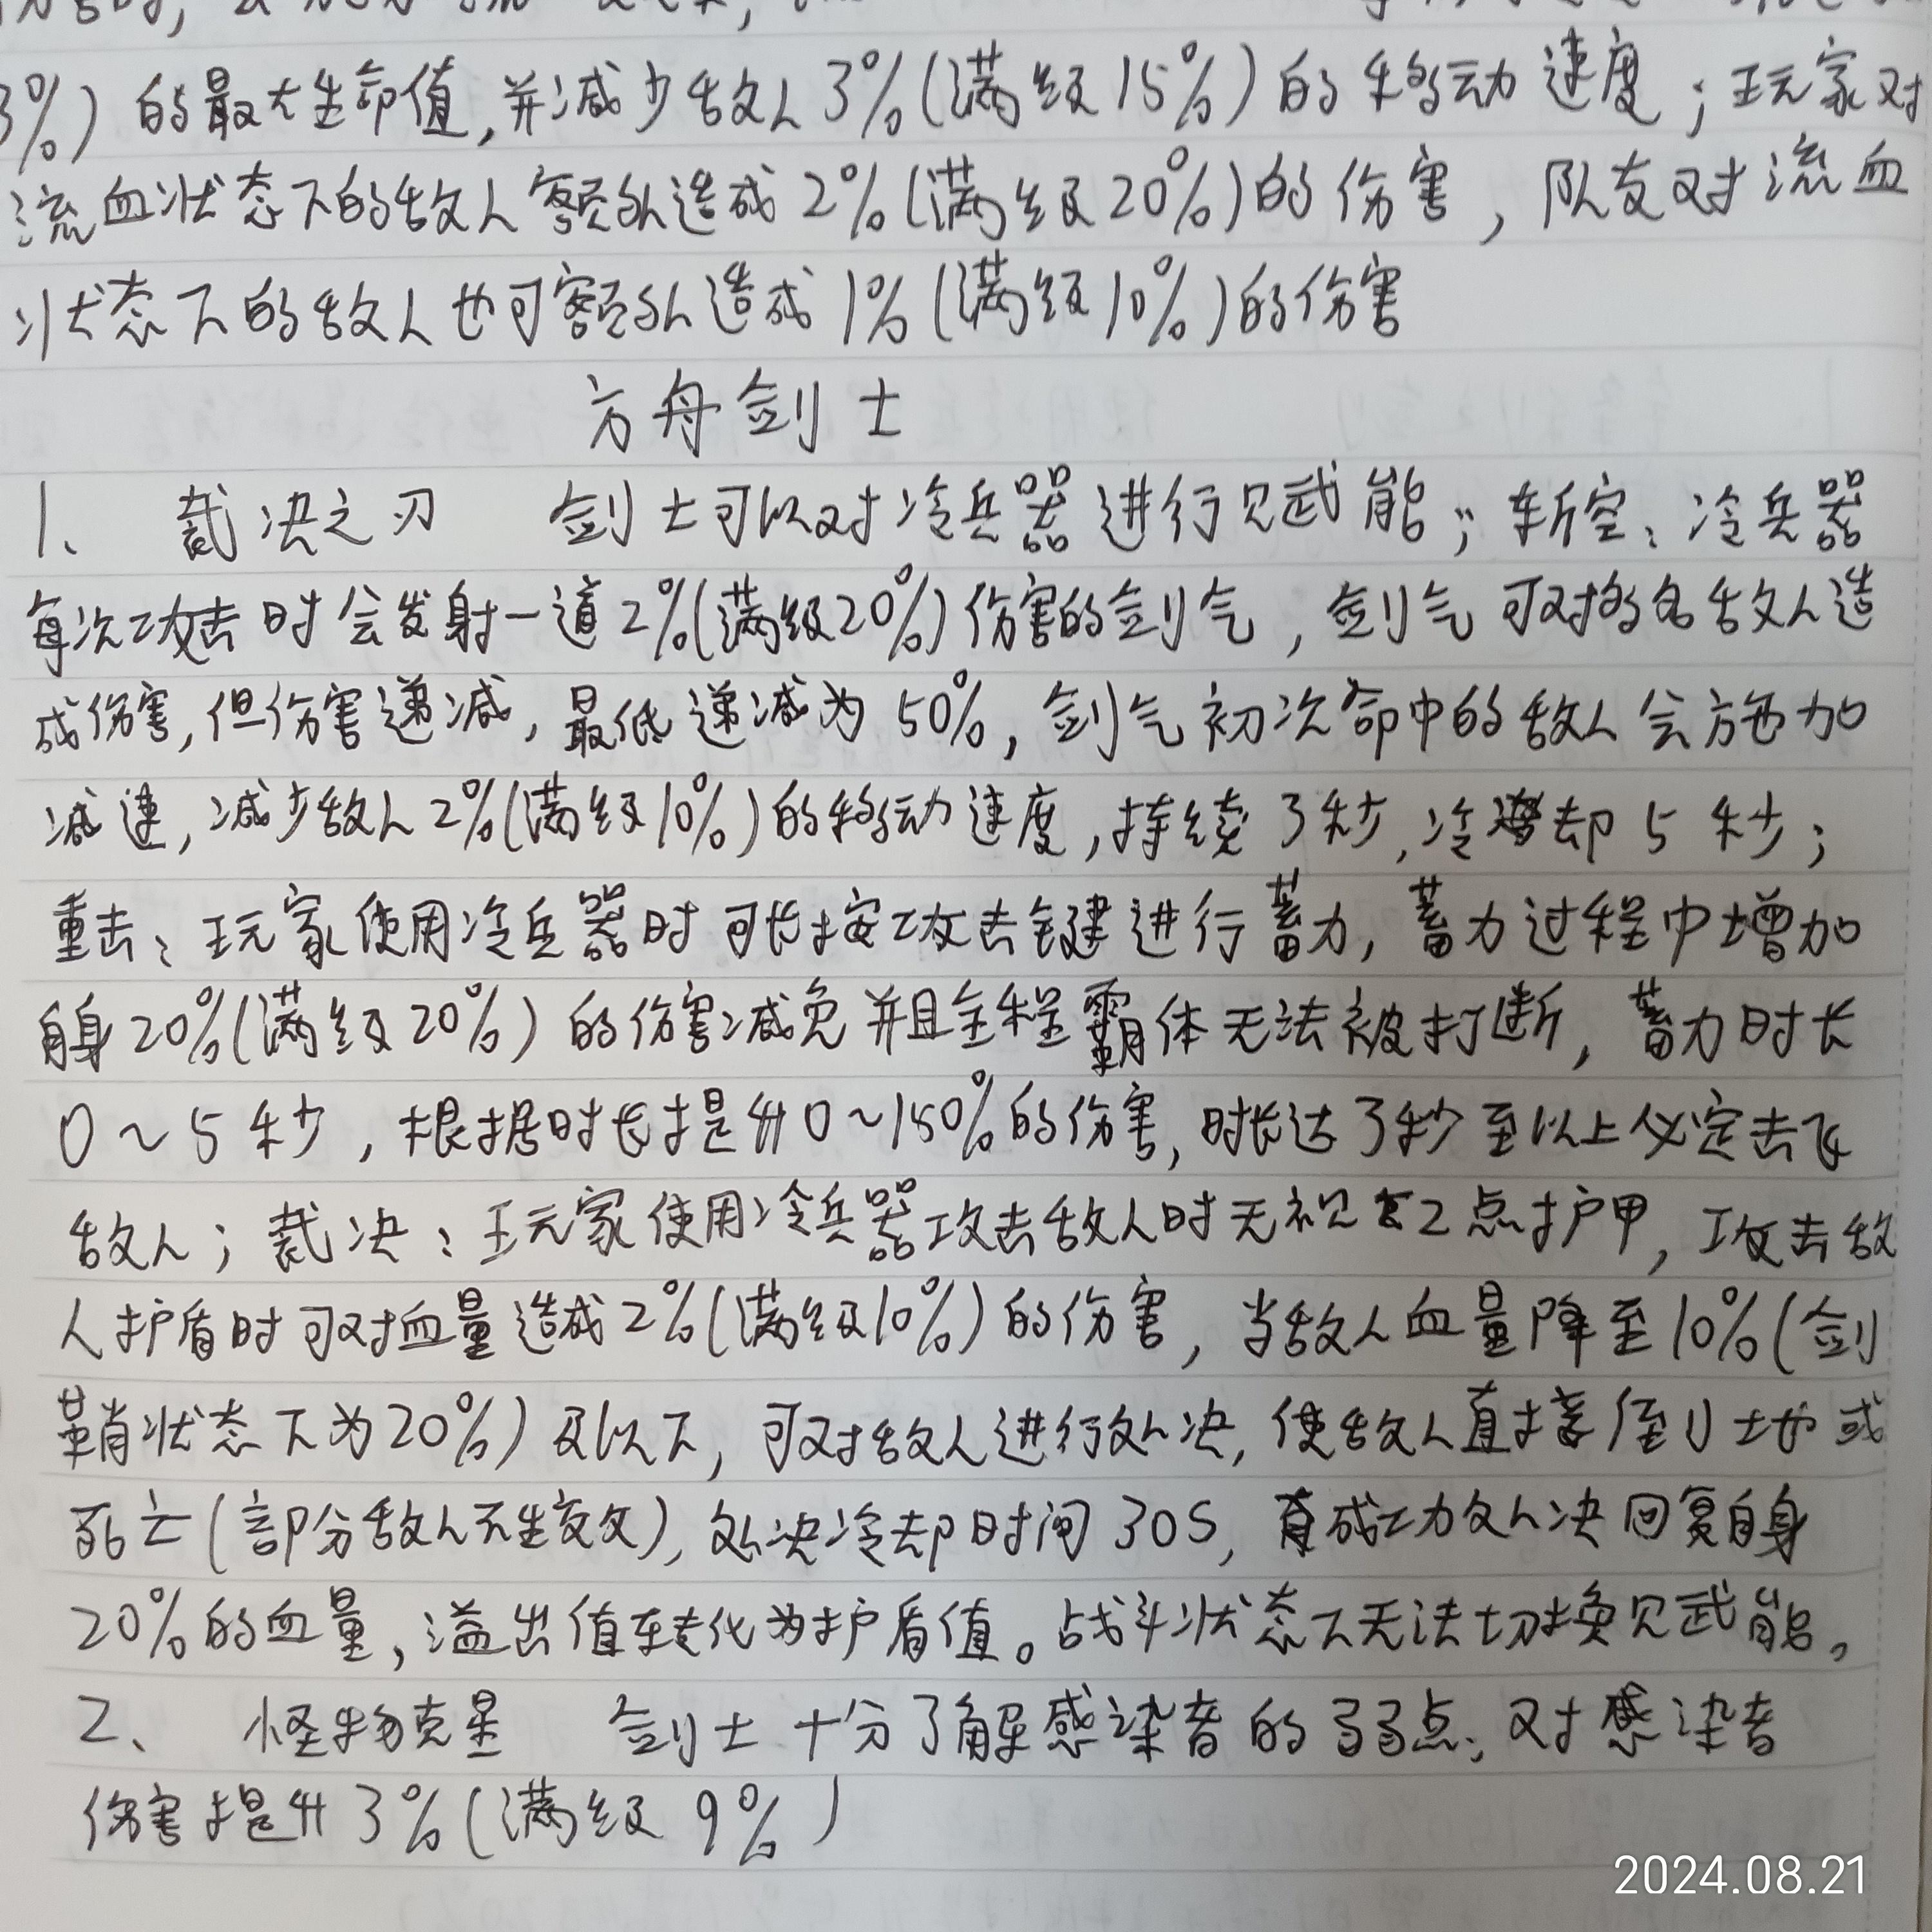 3%）的最大生命值，并减少敌人3%（满级15%）的移动速度；玩家对
流血状态下的敌人额外造成2%（满级20%）的伤害，队友对流血
状态下的敌人也可额外造成1%（满级10%）的伤害
方舟剑士
1、 裁决之刃 剑士可以对冷兵器进行赋能；斩空：冷兵器
每次攻击时会发射一道2%（满级20%）伤害的剑气，剑气可对多名敌人造
成伤害，但伤害递减，最低递减为50%，剑气初次命中的敌人会施加
减速，减少敌人2%（满级10%）的移动速度，持续3秒，冷却5秒；
重击：玩家使用冷兵器时可长按攻击键进行蓄力，蓄力过程中增加
自身20%（满级20%）的伤害减免并且全程霸体无法被打断，蓄力时长
0～5秒，根据时长提升0～150%的伤害，时长达3秒至以上必定击飞
敌人；裁决：玩家使用冷兵器攻击敌人时无视2点护甲，攻击敌
人护盾时可对血量造成2%（满级10%）的伤害，当敌人血量降至10%（剑
鞘状态下为20%）及以下，可对敌人进行处决，使敌人直接倒地或
死亡（部分敌人不生效），处决冷却时间30S，成功处决回复自身
20%的血量，溢出值转化为护盾值。战斗状态下无法切换赋能。
2、 怪物克星 剑士十分了解感染者的弱点，对感染者
伤害提升3%（满级9%）
2024.08.21